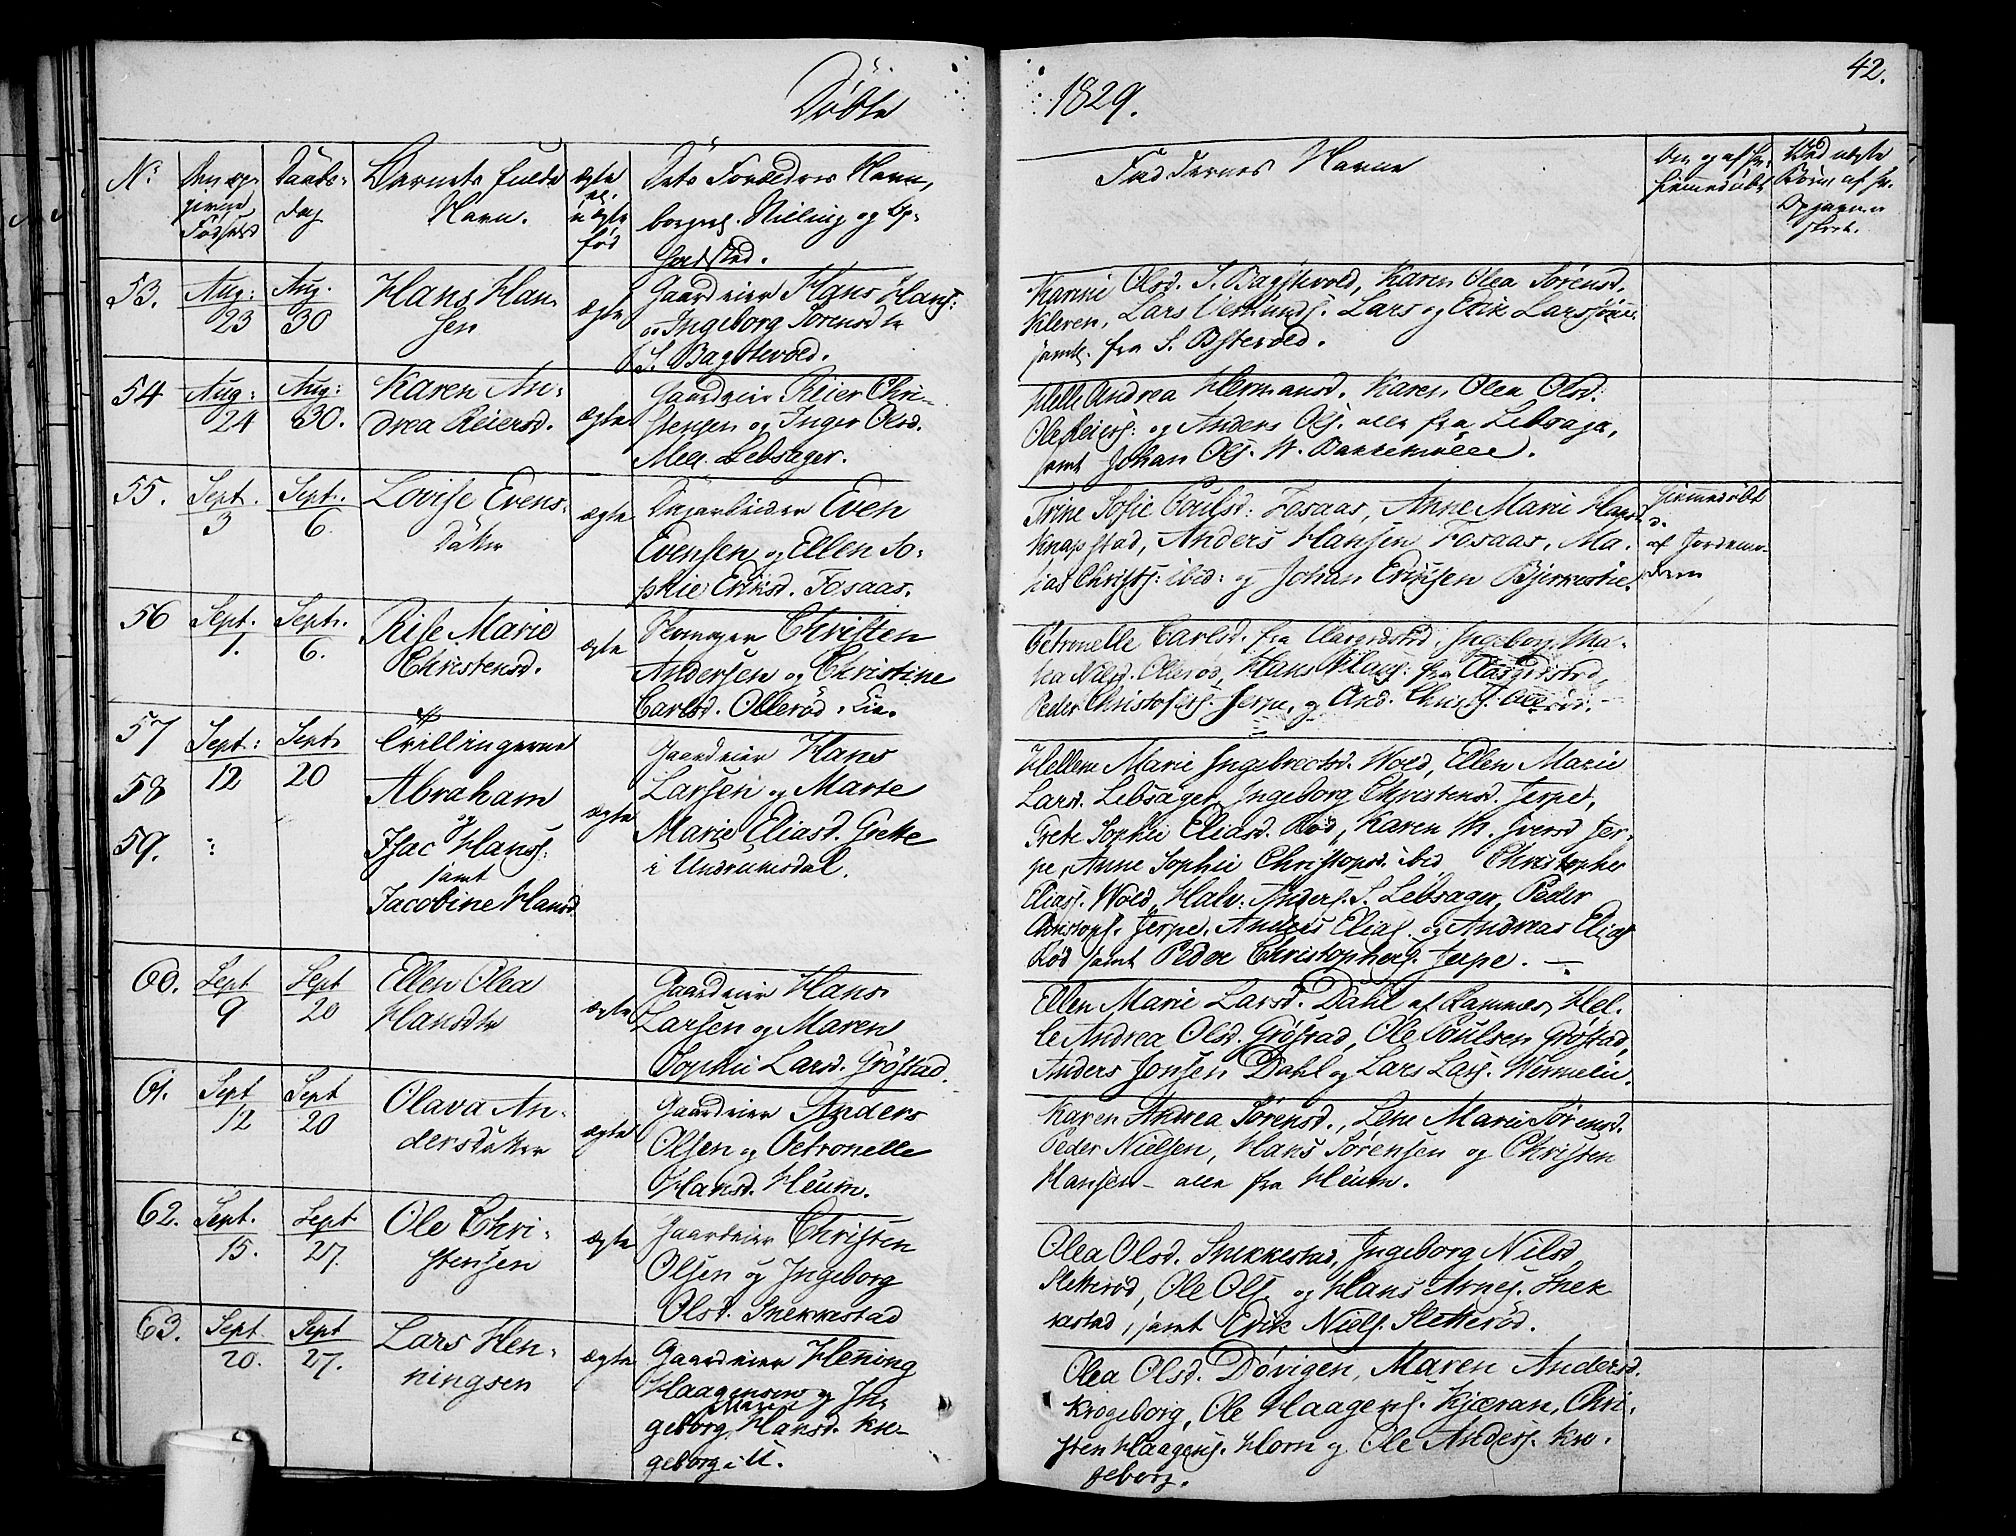 Döbte
1829.
42.
No
Daabs-
dag
Barnets fulde
Navn.
ægte
el.
uægte
fød
Dets Forældres Navn,
Faddernes Navne
53.
Aug:
23
Aug.
30
Hans Han-
sen
ægte
Gaardeier Hans Hans:
og Ingeborg Sørensdtr
S. Bagstevold.
Karine Olsd. S. Bagstevold, Karen Olea Sørensd.
Kleven, Lars
samt. fra S.
54
Aug:
24
Aug:
30.
Karen An-
drea Reiersd.
ægte
Gaardeier Reier Chri-
stensen og Inger Olsd.
Mell. Lebsager.
Helle Andrea Hermansd. Karen Olea Olsd:
Ole Reiers: og Anders Ols. alle fra Lebsager,
samt Johan Ols. N. Bakkemölle.
55.
Sept.
3
Sept.
6.
Lovise Evens-
datter
ægte
Even
Evensen og Ellen So-
phie Eriksd. Fosaas.
Trine Sofie Poulsd: Fosaas, Anne Marie Hansd
Knapstad, Anders Hansen Fosaas, Ma-
ias Christs: ibid: og Johan Eriksen Bjerkestie.
hjemmedøbt
af Jordemo-
deren
56
Sept.
1.
Sept.
6.
Rise Marie
Christensd.
ægte
Christen
Andersen og Christine
Carlsd. Ollerød. Eie.
Petronelle Carlsd. fra Aasgrdstrd, Ingeborg Ma-
hea Nilsd. Ollerød, Hans Hans: fra Aasgrdstrd,
Peder Christofers. Jerpe, og And. Christs. Ollerød.
57
58
59.
Sept:
12
Sept.
20
Trillingerne
Abraham
og
Isac Hans:
samt
Jacobine Hansd
ægte
Gaardeier Hans
Larsen og Marte
Marie Eliasd. Grette
i Undrumsdal.
Hellene Marie Ingebrectsd. Wold, Ellen Marie
Larsd. Lebsager, Ingeborg Christensd. Jerpe,
Grete Sophie Eliasd. Rød, Karen M. Iversd Jer-
pe, Anne Sophie Christopsd. ibid Christopher
Elias. Wold, Halv: Anders. S. Lebsager, Peder
Christoph. Jerpe, Anders Elias. og Andreas Elias
Rød samt Peder Christophers. Jerpe.
60.
Sept
9
Sept
20
Ellen Olea
Hansdtr
ægte
Gaardeier Hans
Larsen og Maren
Sophie Larsd. Gröstad.
Ellen Marie Larsd. Dahl af Ramnes, Hel-
le Andrea Olsd. Gröstad, Ole Poulsen Gröstad,
Anders Jonsen Dahl og Lars Lars. Wermelie.
61.
Sept
12
Sept
20
Olava An-
dersdatter
ægte
Gaardeier Anders
Olsen og Petronelle
Hansd. Heum.
Karen Andrea Sørensd., Lene Marie Sørensd.
Peder Nielsen, Hans Sørensen og Christen
Hansen - alle fra Heum.
62.
Sept.
15.
Sept
27.
Ole Chri-
stensen
ægte
Gaardeier Christen
Olsen og Ingeborg
Olsd. Snekkestad
Olea Olsd. Snekkestad, Ingeborg Nilsd.
Sletteröd, Ole Ols. og Hans Arnes. Snek
kestad, samt Erik Niels. Sletteröd.
63.
Sept
20.
Sept
27.
Lars Hen-
ningsen
ægte
Gaardeier Hening
Haagensen og In-
geborg Marie Hansd. Kro-
geborg i U.
Olea Olsd. Døvigen, Maren Andersd.
Krogeborg, Ole Haagens. Kjæran, Chri-
sten Haagens. Horn og Ole Anders. Kro-
geborg.